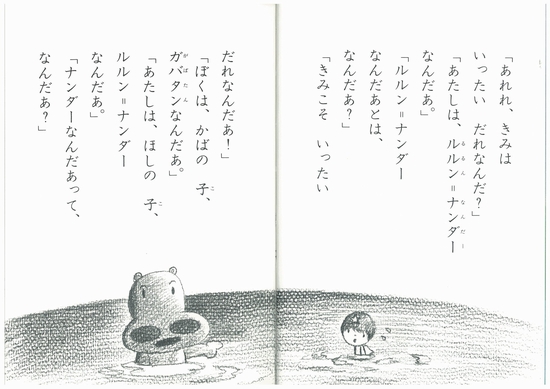 「あれれ、きみは
いったい だれなんだ?」
「あたしは、ルルン=ナンダー
なんだぁ。」
「ルルン=ナンダー
なんだぁとは、
なんだぁ?」
「きみこそ いったい
だれなんだぁ!」
「ぼくは、かばの 子、
ガバタンなんだぁ。」
「あたしは、ほしの 子、
ルルン=ナンダー
なんだぁ。」
「ナンダーなんだぁって、
なんだぁ?」